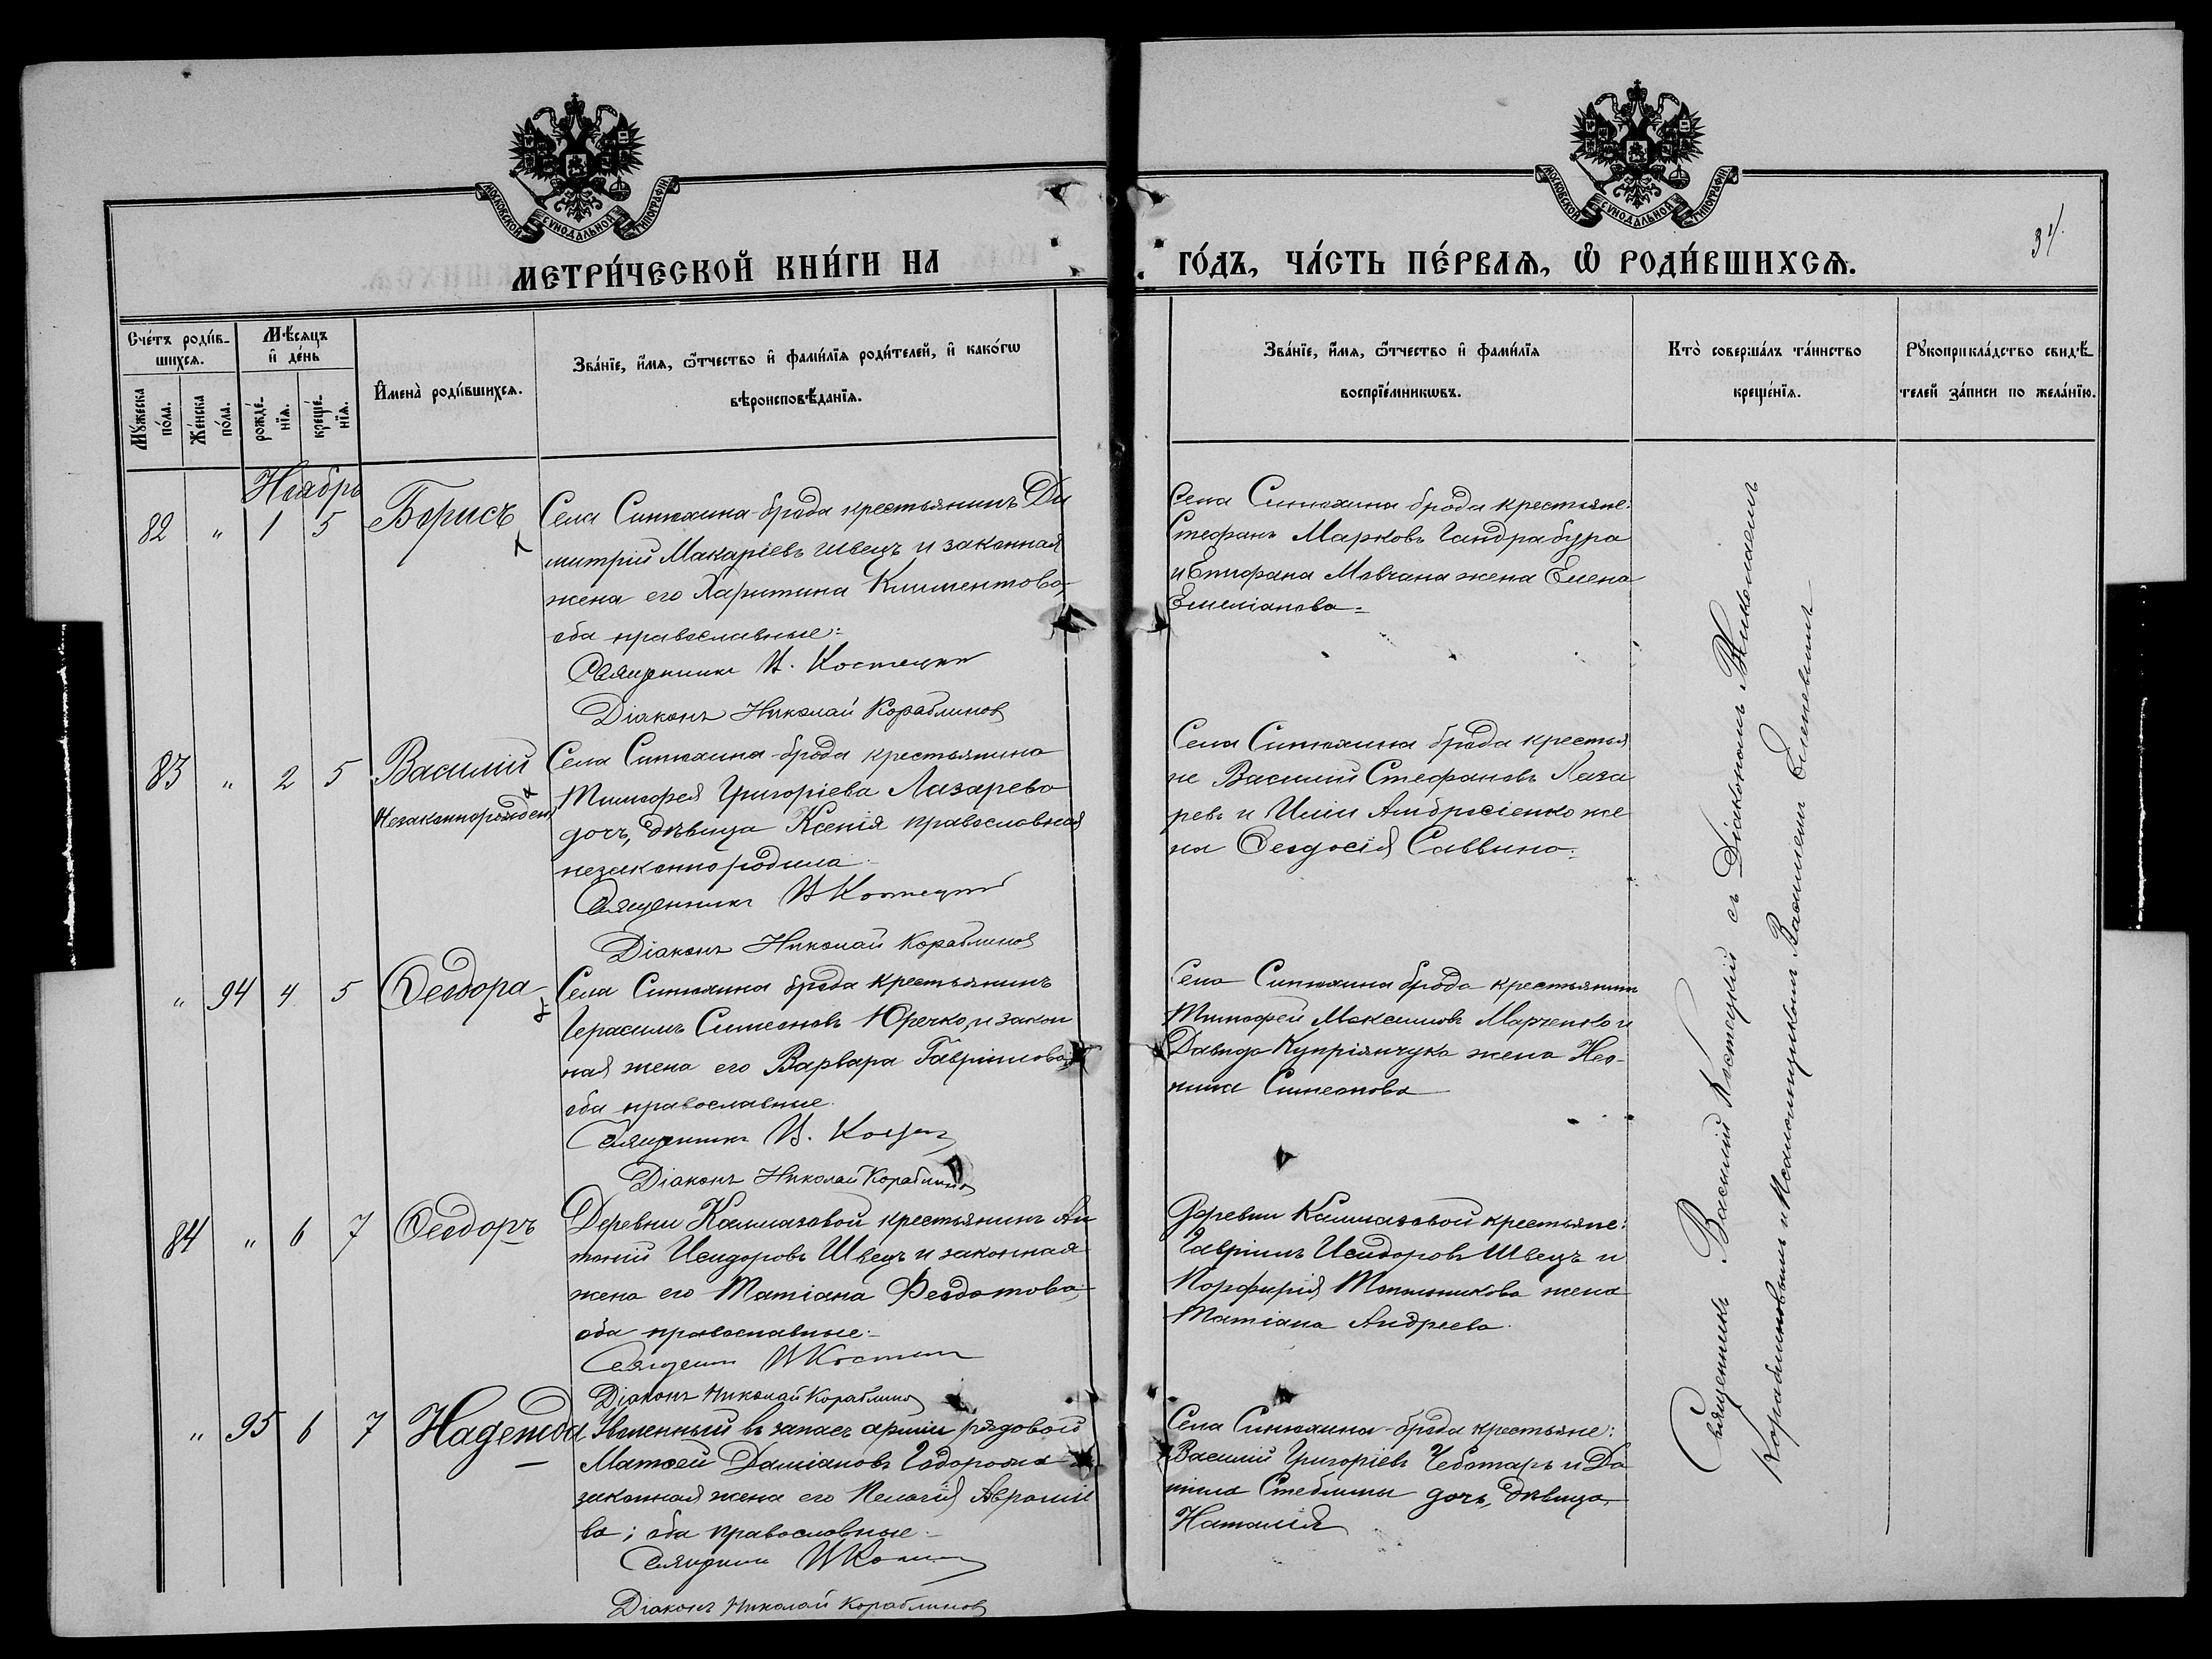 МОСКОВСКОЙ СѴНОДАЛЬНОЙ ТИПОГРАФІИ
МОСКОВСКОЙ СѴНОДАЛЬНОЙ ТИПОГРАФІИ
МЕТРИ́ЧЕСКОЙ КНИ́ГИ НА
ГО́ДЪ, ЧА́СТЬ ПЕ́РВАѦ, Ѡ҆ РОДИ́ВШИХСѦ.
Сче́тъ роди́в-
шихсѧ.
Мꙋ́жеска по́ла.
Же́нска по́ла.
Мѣ́сѧцъ
и҆ де́нь
рожде́-
нїѧ.
креще́-
нїѧ.
И҆мена̀ роди́вшихсѧ.
Зва́нїе, и҆́мѧ, ѻ҆́тчество и҆ фами́лїѧ роди́телей, и҆ како́гѡ
вѣроисповѣ́данїѧ.
Зва́нїе, и҆́мѧ, ѻ҆́тчество и҆ фами́лїѧ
воспрїе́мникѡвъ.
Кто̀ соверша́лъ та́инство
креще́нїѧ.
Рꙋкоприкла́дство свидѣ́-
телей за́писи по жела́нїю.
Ноябрь
82 " 1 5 Борисъ
Села Синюхина-брода крестьянинъ Ди
митрій Макаріевъ Швецъ и законная
жена его Харитина Климентова,
оба православные:
Священникъ В. Костецкій
Діаконъ Николай Кораблинов
Села Синюхина брода крестьяне:
Стефанъ Марковъ Гандрабура
и Епифана Мовчана жена Елена
Емеліанова
83 " 2 5 Василій
Незаконнорожден
Села Синюхина-брода крестьянина
Тимофея Григоріева Лазарева
дочь, дѣвица Ксенія православная
незаконнородила
Священникъ В Костецкій
Діаконъ Николай Кораблинов
Села Синюхина брода крестья
не Василій Стефановъ Лаза
ревъ и Иліи Амбросіенко же
на Ѳеодосія Саввина
" 94 4 5 Ѳеодора
Села Синюхина брода крестьянинъ
Герасимъ Симеоновъ Юречко, и закон
ная жена его Варвара Гавріилова
оба православные
Священникъ В.
Діаконъ Николай Кораблинов
Села Синюхина брода крестьянинъ
Тимофей Максимовъ Марченко и
Давида Купріянчука жена Нео-
нила Симеонова
84 " 6 7 Ѳеодоръ
Деревни Калмазовой крестьянинъ Ан
тоній Исидоровъ Швецъ и законная
жена его Татіана Феодотова
оба православные
Священникъ В
Діаконъ Николай Кораблинов
Деревни Калмазовой крестьяне:
Гавріилъ Исидоровъ Швецъ и
Порфирія жена
Татіана Андреева
" 95 6 7 Надежда
Уволенный въ запасъ арміи рядовой
Матѳей Даміановъ
законная жена его Пелагія Аврамie
ва; оба православные
Священникъ В
Діаконъ Николай Кораблинов
Села Синюхина-брода крестьяне:
Василій Григоріевъ Чеботарь и Да
ніила дочь, дѣвица
Наталія
Священникъ Василій Костецкій съ Діакономъ Николаемъ
Кораблиновымъ и Псаломщикомъ Василіемъ